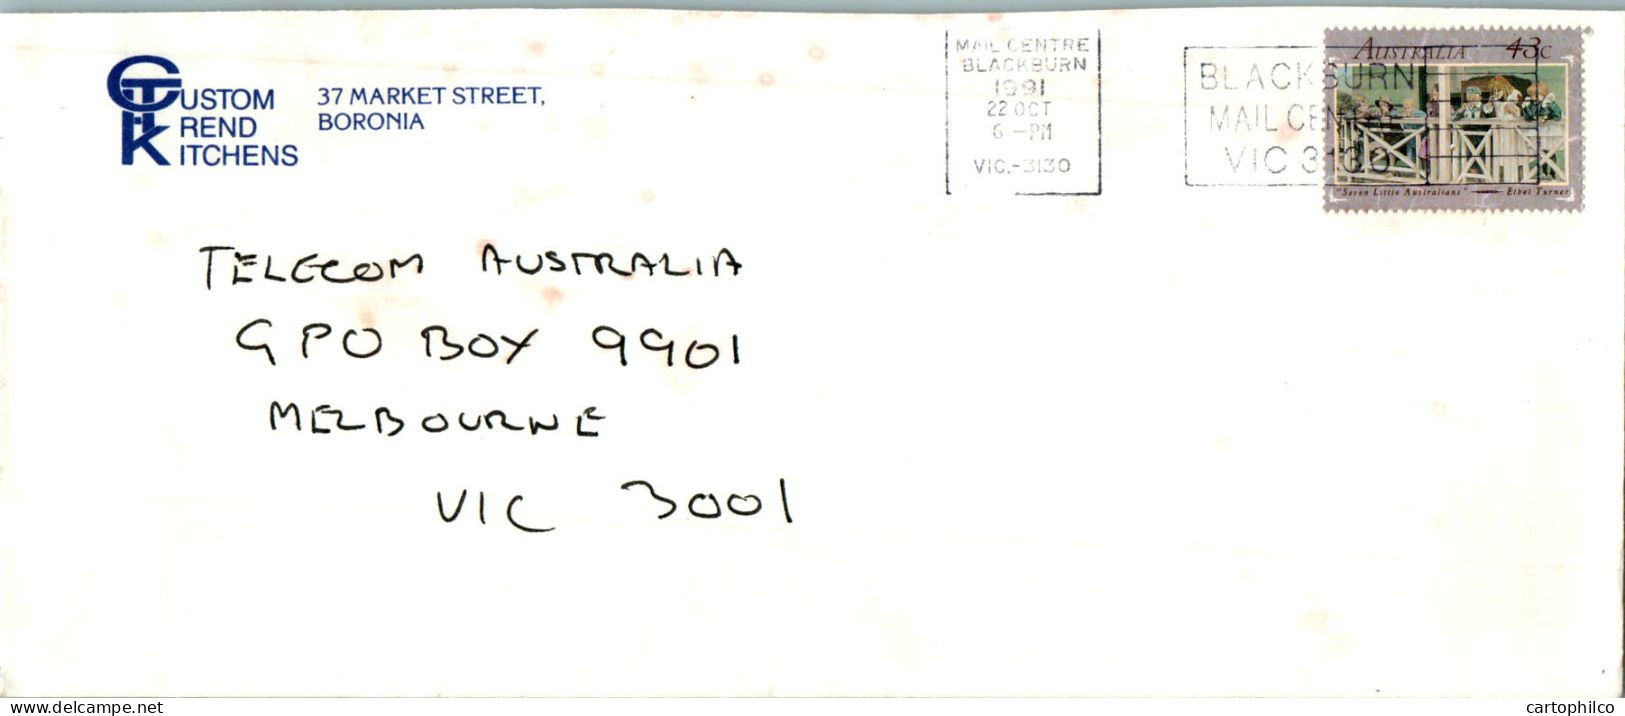 CUSTOM
TREND
KITCHENS
37 MARKET STREET,
BORONIA
MAIL CENTRE
BLACKBURN
1991
22 OCT
6 -PM
VIC.-3130
BLACKBURN
MAIL CENTRE
VIC 3130
AUSTRALIA 43c
"Seven Little Australians" — Ethel Turner
TELECOM AUSTRALIA
GPO BOX 9901
MELBOURNE
VIC 3001
delcampe.net
cartophilco